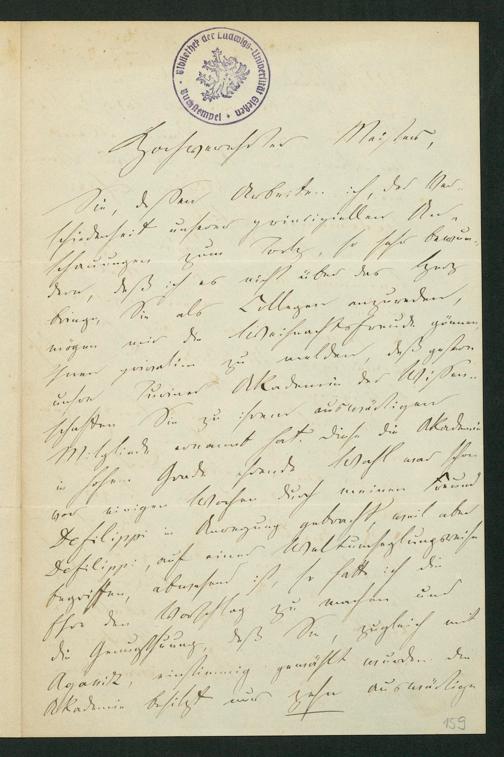 Bibliothek der Ludwigs-Universität Gießen
Buchstempel
Hochverehrter Meister,
Sie, dessen Arbeiten ich, der Ver-
schiedenheit unserer principiellen An-
schauungen zum Trotz, so sehr bewun-
dere, daß ich es nicht über das Herz
bringe, Sie als Collegen anzureden,
mögen mir die Weihnachtsfreude gönnen,
Ihnen privatim zu melden, daß gestern
unsre Turiner Akademie der Wissen-
schaften Sie zu ihrem auswärtigen
Mitgliede ernannt hat. Diese die Akademie
in hohem Grade ehrende Wahl war schon
vor einigen Wochen durch meinen Freund
Defilippi in Anregung gebracht, weil aber
Defilippi, auf einer Weltumseglungsreise
begriffen, abwesend ist, so hatte ich die
Ehre den Vorschlag zu machen und
die Genugthuung, daß Sie, zugleich mit
Agassiz, einstimmig gewählt wurden. Die
Akademie besitzt nur zehn auswärtige
159